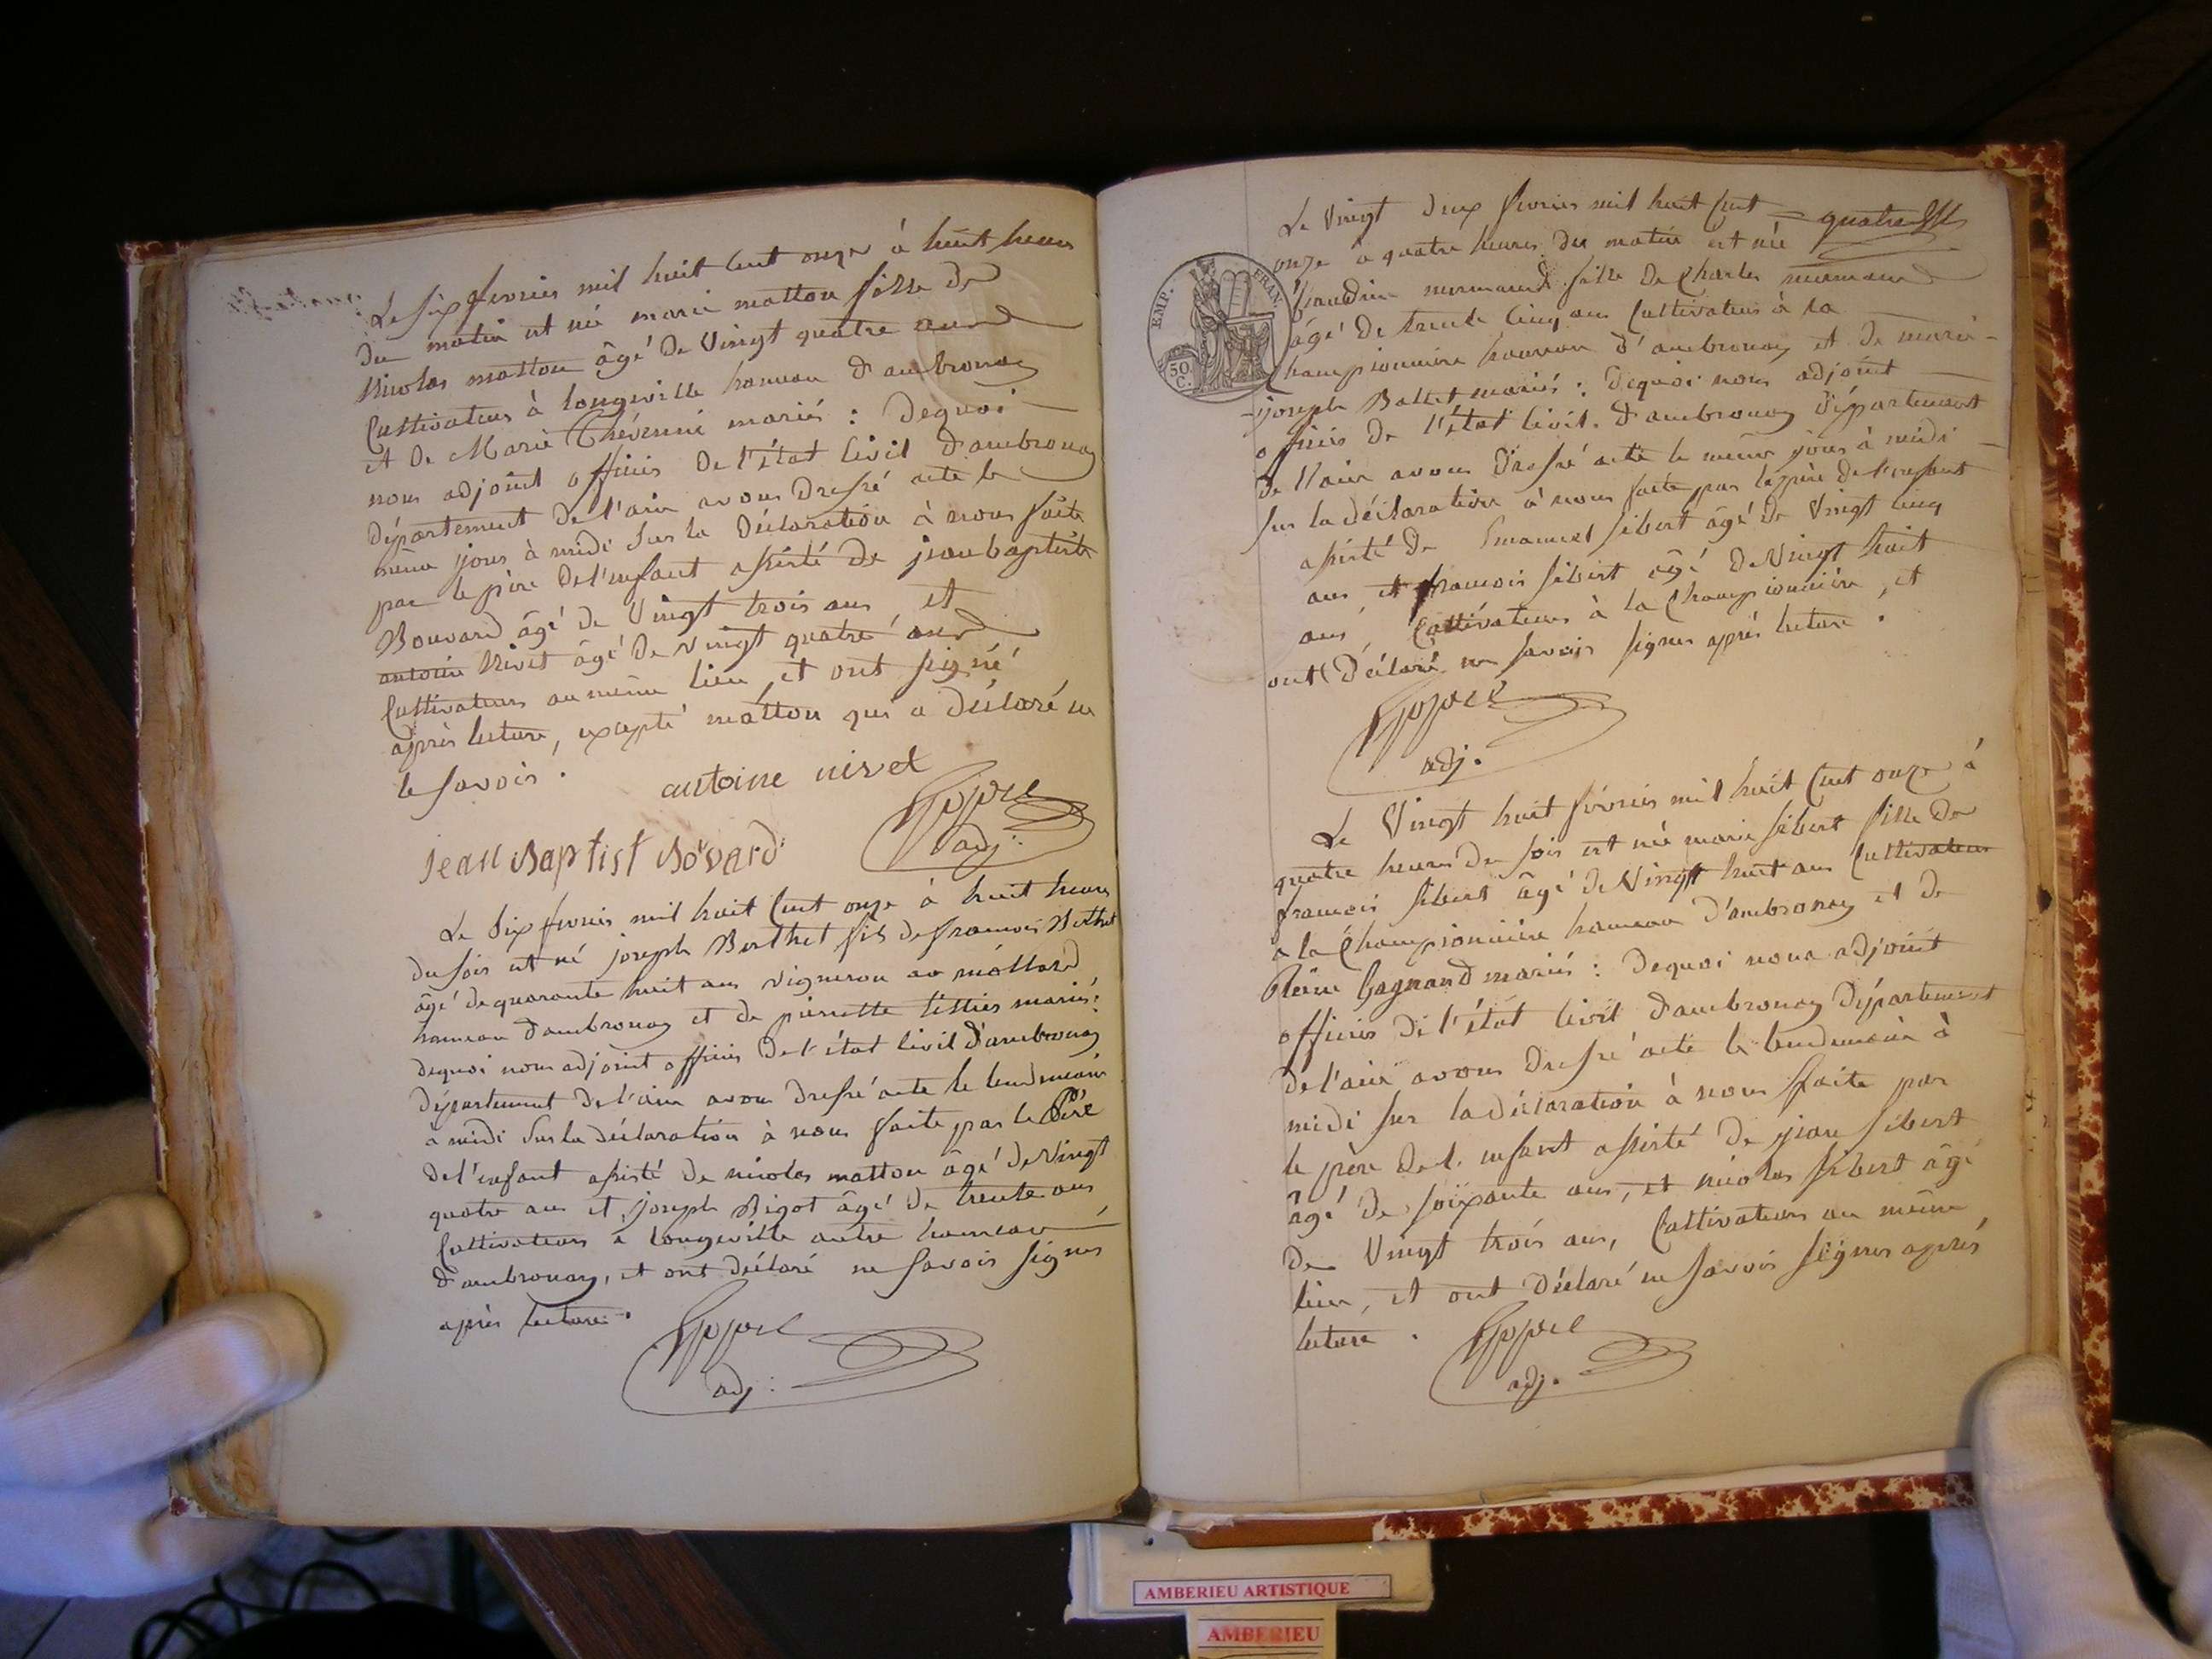 Le six fevrier mil huit cent onze à huit heures
du matin est né marie matton fille de
Nicolas matton âgé de vingt quatre ans
Cultivateur à longeville hameau d'ambronay
et de Marie Thévenin mariés : Dequoi
nous adjoint officier de l'état Civil d'ambronay
département de l'ain avons Dressé acte le
même jour à midi sur la Déclaration à nous faite
par le père de l'enfant assisté de jean baptiste
Bouvard âgé de vingt trois ans, et
antoine Nivet âgé de vingt quatre ans
Cultivateurs au même lieu, et ont signé
après lecture, excepté matton qui a déclaré ne
le savoir.
antoine nivet
adj.
jean Baptist Bovard
Le six fevrier mil huit Cent onze à huit heures
du soir est né joseph Berthet fils de francois Berthet
âgé de quarante huit ans vigneron au mollard
hameau d'ambronay et de pierrette mariés :
dequoi nous adjoint officier de l'état Civil d'ambronay
département de l'ain avons dressé acte le lendemain
à midi sur la déclaration à nous faite par le Père
de l'enfant assisté de nicolas matton âgé de vingt
quatre ans et joseph Bigot âgé de trente ans
Cultivateurs à longeville autre hameau
d'ambronay, et ont déclaré ne savoir signer
après lecture.
adj.
Le vingt deux fevrier mil huit Cent = quatre
onze à quatre heures du matin est née
Claudine normand fille de Charles normand
âgé de trente cinq ans Cultivateur à la
Championnière hameau d'ambronay et de marie-
-joseph Ballet mariés : Dequoi nous adjoint
officier de l'état Civil d'ambronay Département
de l'ain avons Dressé acte le même jour à midi
sur la déclaration à nous faite par le père de l'enfant
assisté de Emanuel Sibert âgé de vingt cinq
ans, et francois Sibert âgé de vingt huit
ans, Cultivateurs à la Championnière, et
ont Déclaré ne savoir signer après lecture.
adj.
EMP. FRAN.
50 C.
Le vingt huit février mil huit Cent onze à
quatre heures du soir est née marie Sibert fille de
francois Sibert âgé de vingt huit ans Cultivateur
à la Championnière hameau d'ambronay et de
Reine Gagnard mariés : Dequoi nous adjoint
officier de l'état Civil d'ambronay Département
de l'ain avons Dressé acte le lendemain à
midi sur la déclaration à nous faite par
le père de l'enfant assisté de jean Sibert
âgé de soixante ans, et nicolas Sibert âgé
de vingt trois ans, Cultivateurs au même
lieu, et ont Déclaré ne savoir signer après
lecture.
adj.
AMBERIEU ARTISTIQUE
AMBERIEU